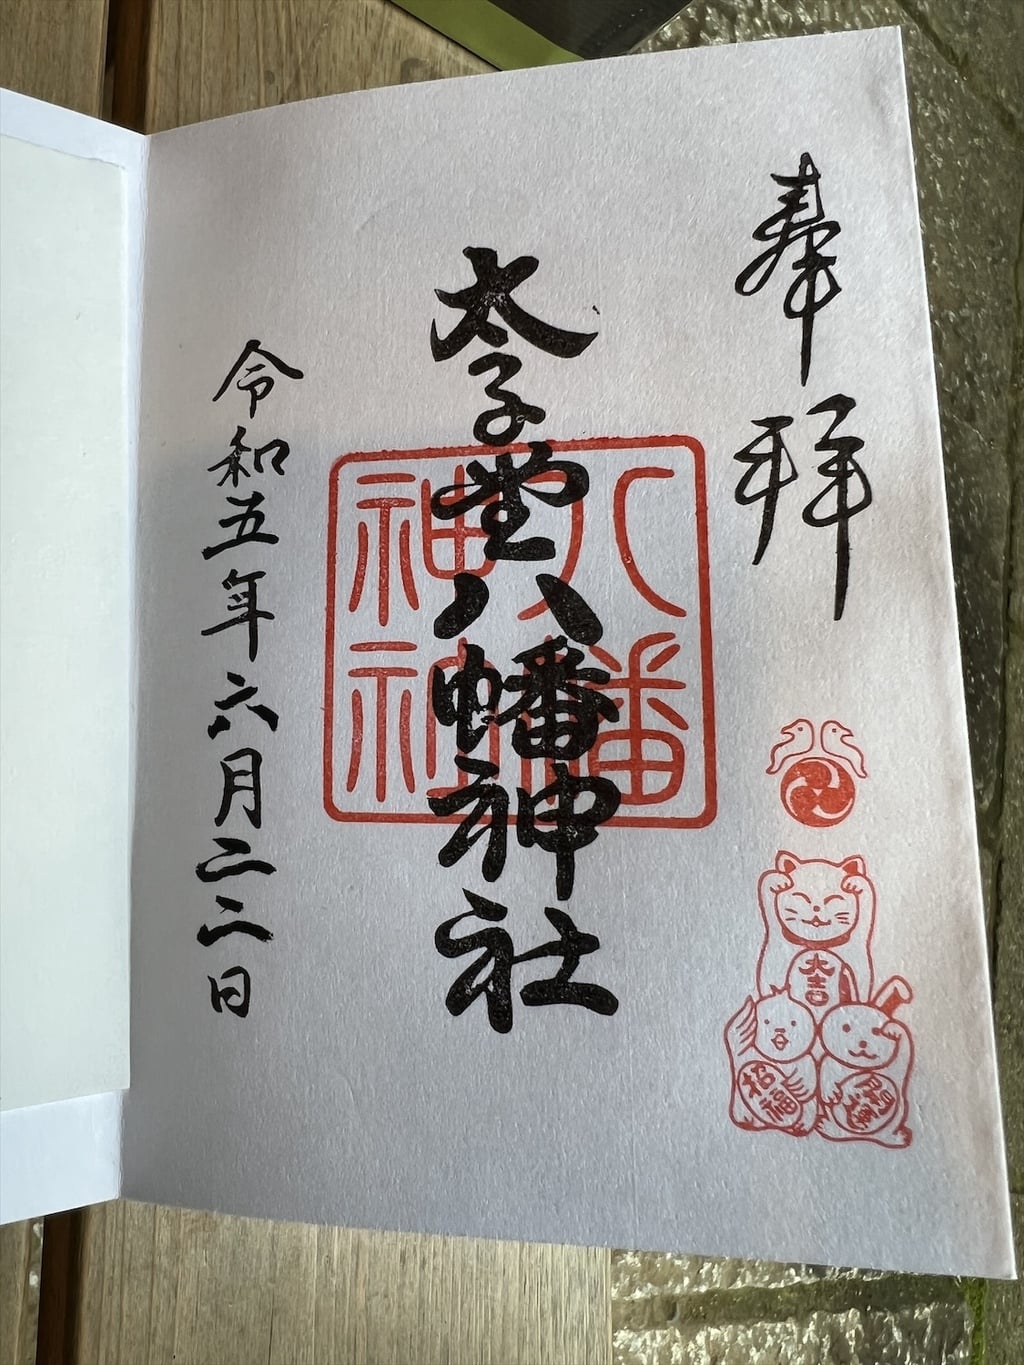 奉拝
大吉
招福
太子堂八幡神社
八幡
神社
令和五年六月二二日